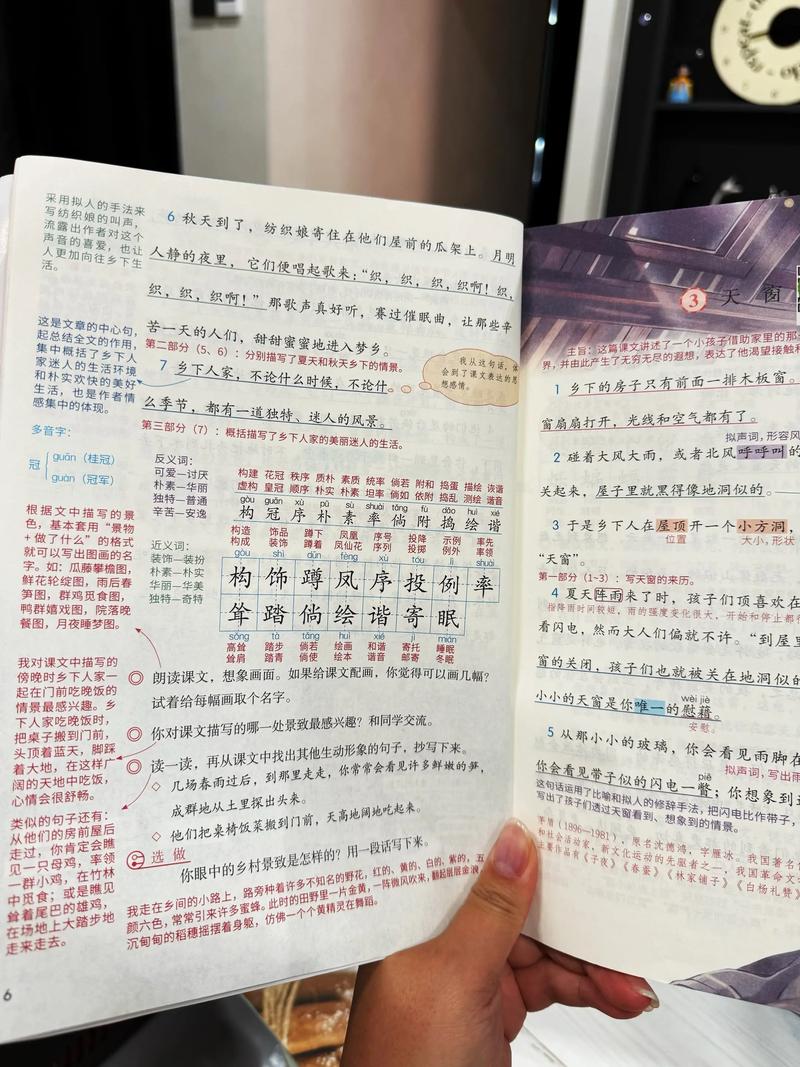 采用拟人的手法来
写纺织娘的叫声，
流露出作者对这个
声音的喜爱，也让
人更加向往乡下生
活。
6 秋天到了，纺织娘寄住在他们屋前的瓜架上。月明
人静的夜里，它们便唱起歌来：“织，织，织，织啊！织，
织，织，织啊！”那歌声真好听，赛过催眠曲，让那些辛
苦一天的人们，甜甜蜜蜜地进入梦乡。
第二部分（5、6）：分别描写了夏天和秋天乡下的情景。
这是文章的中心句，
起总结全文的作用，
集中概括了乡下人
家迷人的生活环境
和朴实欢快的美好
生活，也是作者情
感集中的体现。
7 乡下人家，不论什么时候，不论什
么季节，都有一道独特、迷人的风景。
我从这句话，体
会到了课文表达的思
想感情。
第三部分（7）：概括描写了乡下人家的美丽迷人的生活。
多音字：
冠
guān（桂冠）
guàn（冠军）
反义词：
可爱—讨厌
朴素—华丽
独特—普通
辛苦—安逸
近义词：
装饰—装扮
朴素—朴实
华丽—华美
独特—奇特
构建 花冠 秩序 质朴 素质 统率 倘若 附和 捣蛋 描绘 诙谐
虚构 皇冠 顺序 朴实 朴素 坦率 倘如 依附 捣乱 测绘 谐音
gòu guān xù pǔ sù shuài tǎng fù dǎo huì xié
构 冠 序 朴 素 率 倘 附 捣 绘 谐
构造 饰品 蹲下 凤凰 序号 投降 示例 率先
构成 装饰 蹲着 凤仙花 序列 投掷 例外 率领
gòu shì dūn fèng xù tóu lì shuài
构 饰 蹲 凤 序 投 例 率
耸 踏 倘 绘 谐 寄 眠
sǒng tà tǎng huì xié jì mián
高耸 踏步 倘若 绘画 和谐 寄托 睡眠
耸肩 踏青 倘使 绘本 谐音 邮寄 冬眠
根据文中描写的景
色，基本套用“景物
+做了什么”的格式
就可以写出图画的名
字。如：瓜藤攀檐图，
鲜花轮绽图，雨后春
笋图，群鸡觅食图，
鸭群嬉戏图，院落晚
餐图，月夜睡梦图。
朗读课文，想象画面。如果给课文配画，你觉得可以画几幅？
试着给每幅画取个名字。
我对课文中描写的
傍晚时乡下人家一
起在门前吃晚饭的
情景最感兴趣。乡
下人家吃晚饭时，
把桌子搬到门前，
头顶着蓝天，脚踩
着大地，在这样广
阔的天地中吃饭，
心情会很舒畅。
你对课文描写的哪一处景致最感兴趣？和同学交流。
读一读，再从课文中找出其他生动形象的句子，抄写下来。
几场春雨过后，到那里走走，你常常会看见许多鲜嫩的笋，
成群地从土里探出头来。
他们把桌椅饭菜搬到门前，天高地阔地吃起来。
类似的句子还有：
从他们的房前屋后
走过，你肯定会瞧
见一只母鸡，率领
一群小鸡，在竹林
中觅食；或是瞧见
耸着尾巴的雄鸡，
在场地上大踏步地
走来走去。
选做
你眼中的乡村景致是怎样的？用一段话写下来。
我走在乡间的小路上，路旁种着许多不知名的野花，红的、黄的、白的、紫的，五
颜六色，常常引来许多蜜蜂。此时的田野里一片金黄，一阵微风吹来，翻起层层金浪，
沉甸甸的稻穗摇摆着身躯，仿佛一个个黄精灵在舞蹈。
6
3 天窗
主旨：这篇课文讲述了一个小孩子借助家里的那
界，并由此产生了无穷无尽的遐想，表达了他渴望接触
1 乡下的房子只有前面一排木板窗。
窗扇扇打开，光线和空气都有了。
拟声词，形容风
2 碰着大风大雨，或者北风呼呼叫的
关起来，屋子里就黑得像地洞似的。
3 于是乡下人在屋顶开一个小方洞，
位置 大小，形状
“天窗”。
第一部分（1~3）：写天窗的来历。
4 夏天阵雨来了时，孩子们顶喜欢在
指降雨时间较短，雨的强度变化很大，开始和停止都很
看闪电，然而大人们偏就不许。“到屋里
窗的关闭，孩子们也就被关在地洞似的
wèi jiè
小小的天窗是你唯一的慰藉。
安慰。
5 从那小小的玻璃，你会看见雨脚在
拟声词，写出雨
piē
你会看见带子似的闪电一瞥；你想象到
这句话运用了比喻和拟人的修辞手法，把闪电比作带子，
写出了孩子们透过天窗看到、想象到的情景。
茅盾（1896—1981），原名沈德鸿，字雁冰。我国著名
和社会活动家，新文化运动的先驱者之一，我国革命文
主要作品有《子夜》《春蚕》《林家铺子》《白杨礼赞》